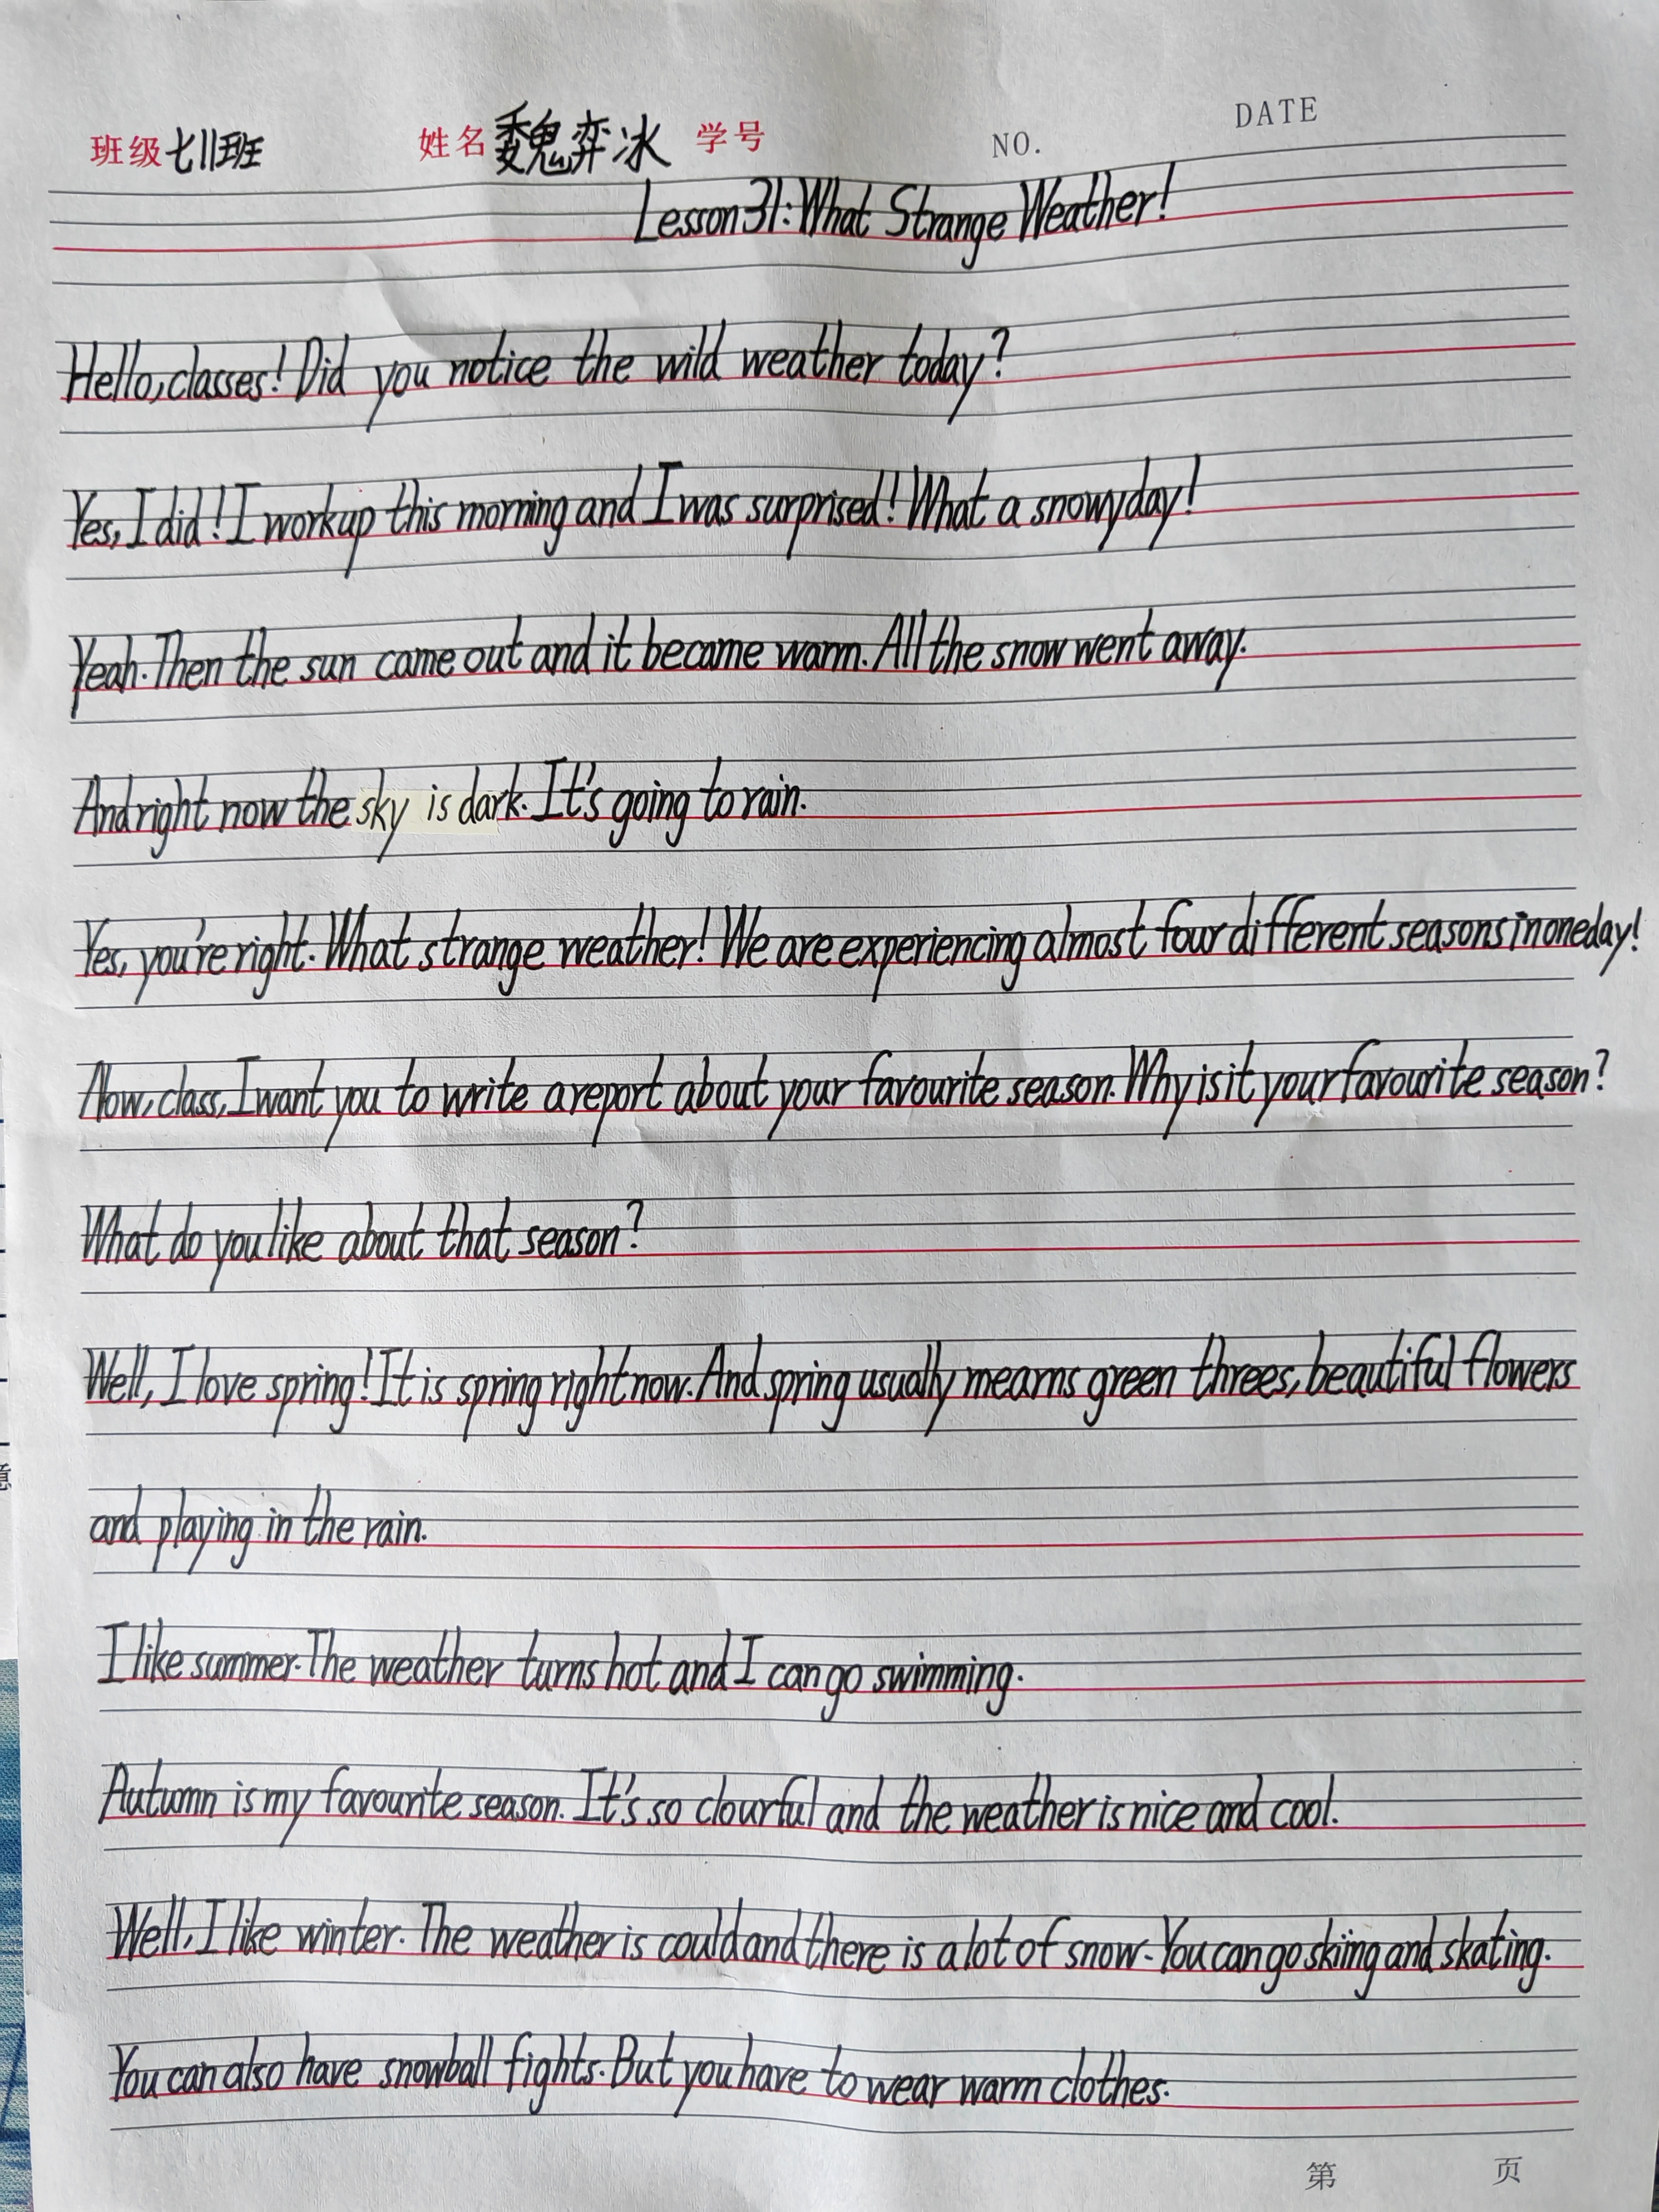 班级七11班 姓名魏弈冰 学号 NO. DATE
Lesson 31: What Strange Weather!
Hello, classes! Did you notice the wild weather today?
Yes, I did! I workup this morning and I was surprised! What a snowy day!
Yeah. Then the sun came out and it became warm. All the snow went away.
And right now the sky is dark. It's going to rain.
Yes, you're right. What strange weather! We are experiencing almost four different seasons in one day!
Now, class, I want you to write a report about your favourite season. Why is it your favourite season?
What do you like about that season?
Well, I love spring! It is spring right now. And spring usually means green threes, beautiful flowers
and playing in the rain.
I like summer. The weather turns hot and I can go swimming.
Autumn is my favourite season. It's so clourful and the weather is nice and cool.
Well, I like winter. The weather is could and there is a lot of snow. You can go skiing and skating.
You can also have snowball fights. But you have to wear warm clothes.
第 页